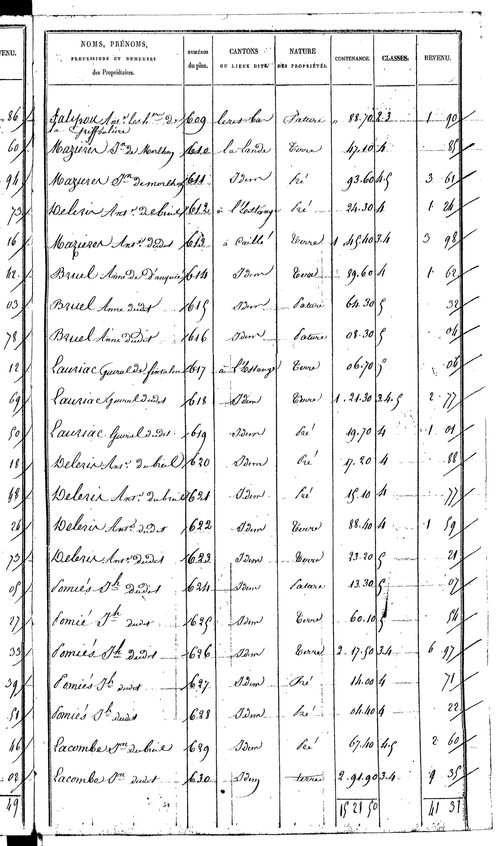 VENU.
NOMS, PRÉNOMS,
PROFESSIONS ET DEMEURES
des Propriétaires.
NUMÉROS
du plan.
CANTONS
OU LIEUX DITS.
NATURE
DES PROPRIÉTÉS.
CONTENANCE.
CLASSES.
REVENU.
86 1609 Pature " 88.70 2.3 1 90
60 Mazieres Jn de 1610 la lande Terre 47.10 4 85
94 Mazieres Jn 1611 Idem Pré 93.60 4.5 3 61
73 Deleris Ant. 1612 à l'Estang Pré 24.30 4 1 26
16 Mazieres Ant. dudit 1613 à Terre 1.45.40 3.4 3 98
42 Bruel Anne de 1614 Idem Terre 89.60 4 1 62
03 Bruel Anne dudit 1615 Idem Pature 64.30 5 32
78 Bruel Anne dudit 1616 Idem Pature 08.30 5 04
12 Lauriac 1617 à l'Estange Terre 06.70 5 06
69 Lauriac dudit 1618 Idem Terre 1.21.30 3.4.5 2 77
50 Lauriac dudit 1619 Idem Pré 19.70 4 1 01
18 Deleris Ant. 1620 Idem Pré 17.20 4 88
48 Deleris Ant. 1621 Idem Pré 15.10 4 77
26 Deleris Ant. dudit 1622 Idem Terre 88.40 4 1 59
73 Deleris Ant. dudit 1623 Idem Terre 23.20 5 21
05 Pomiés Jh dudit 1624 Idem Pature 13.30 5 07
27 Pomié Jh dudit 1625 Idem Terre 60.10 5 54
33 Pomiés Jh dudit 1626 Idem Terre 2.17.50 3.4 6 97
39 Pomiés Jh dudit 1627 Idem Pré 14.00 4 71
51 Pomiés Jh dudit 1628 Idem Pré 04.40 4 22
46 Lacombe Jn 1629 Idem Pré 67.40 4.5 2 60
02 Lacombe Jn dudit 1630 Idem terre 2.91.90 3.4 9 35
49 15 21 50 41 31